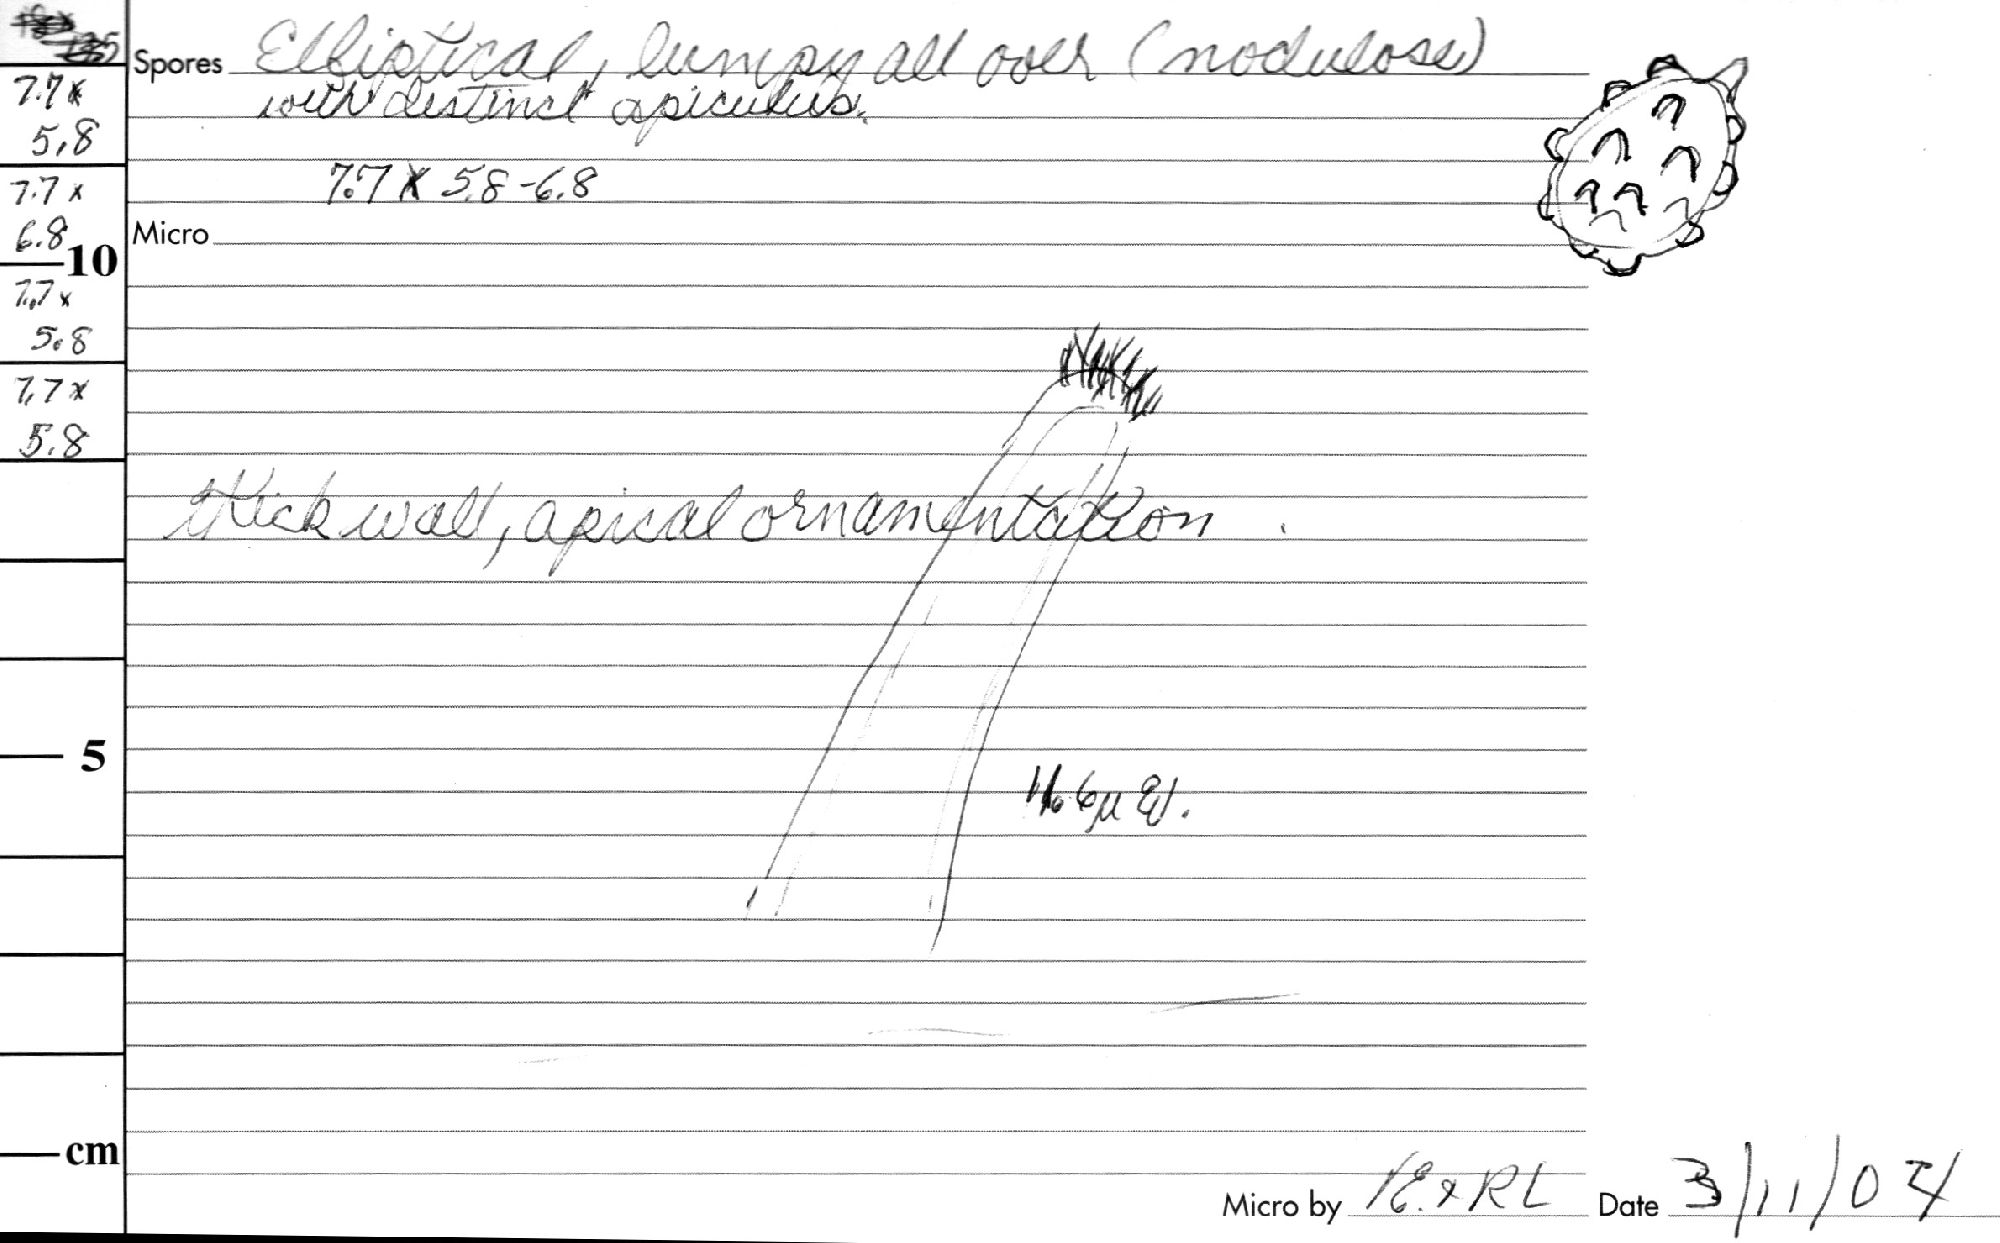 Spores Elliptical, lumpy all over (nodulose)
with distinct apiculus.
7.7 x 5.8-6.8
Micro
7.7 x
5.8
7.7 x
6.8
10
7.7 x
5.8
7.7 x
5.8
thick wall, apical ornamentation.
5
cm
Micro by & RL Date 3/11/04